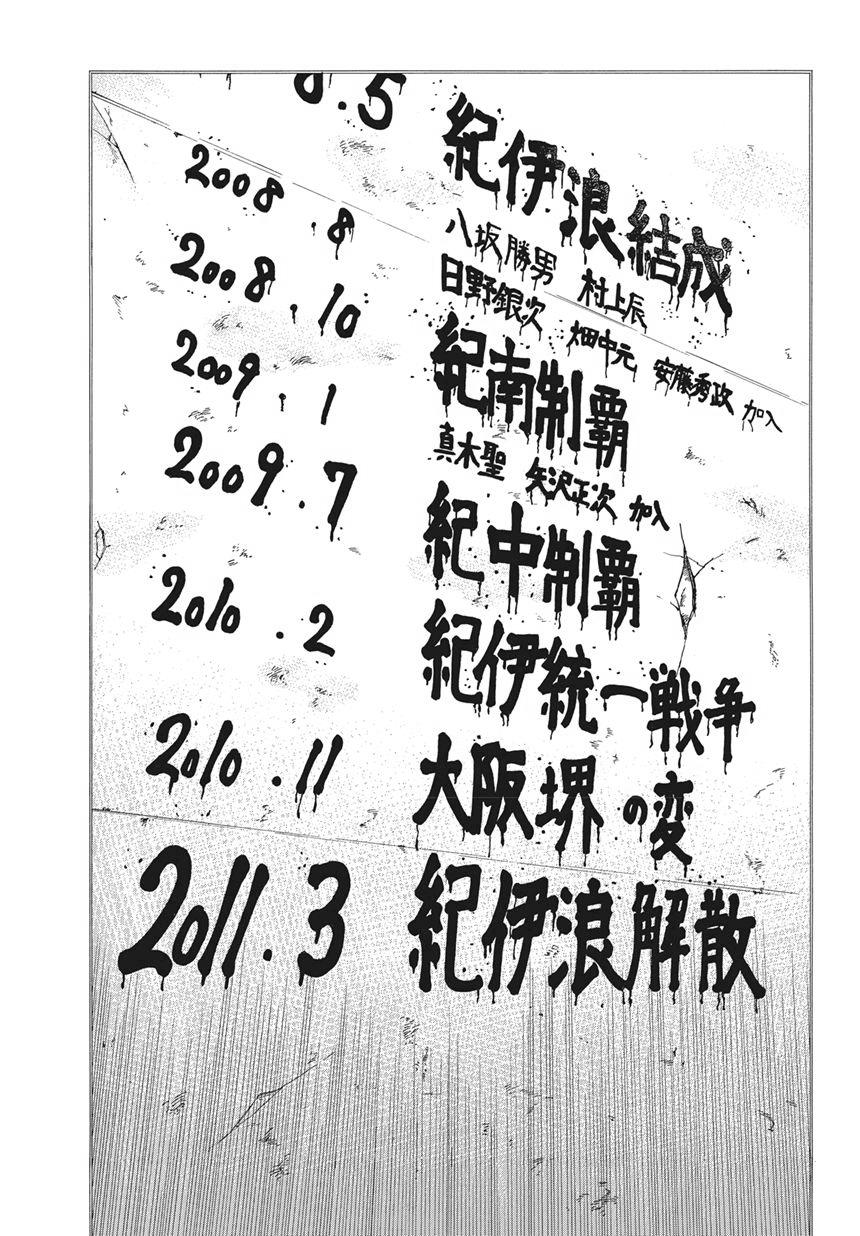 8.5 紀伊浪結成
2008.8 八坂勝男 村上辰
日野銀次 畑中元 安藤秀政 加入
2008.10 紀南制覇
2009.1 真木聖 矢沢正次 加入
2009.7 紀中制覇
2010.2 紀伊統一戦争
2010.11 大阪堺の変
2011.3 紀伊浪解散